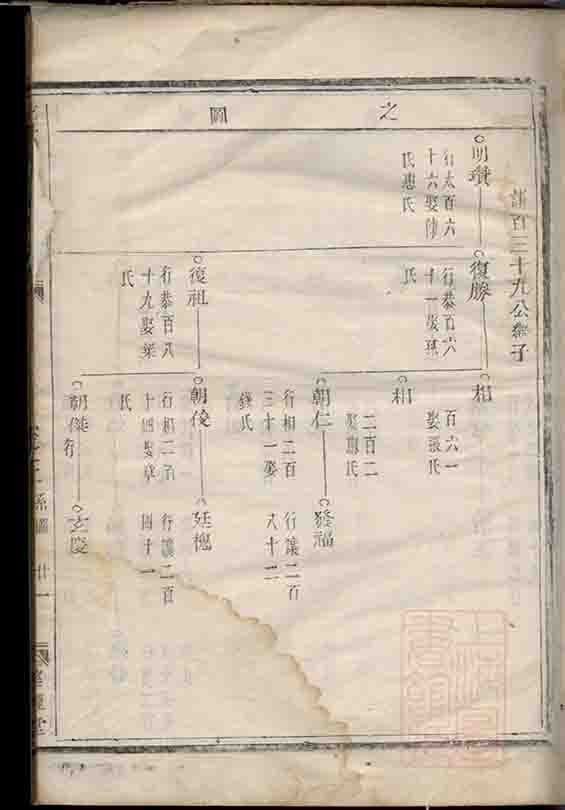 之圖
百三十九公樂子
明瓚
行太百六
十六娶陳
氏惠氏
復勝
行恭百六
十一娶
氏
相
百六一
娶張氏
相
二百二
娶惠氏
朝仁
行相二百
三十一娶
錢氏
發福
行讓二百
八十二
復祖
行恭百八
十九娶
氏
朝俊
行相二百
十四娶章
氏
廷槐
行讓二百
四十一
朝傑
行
玄慶
系圖
廿一
堂